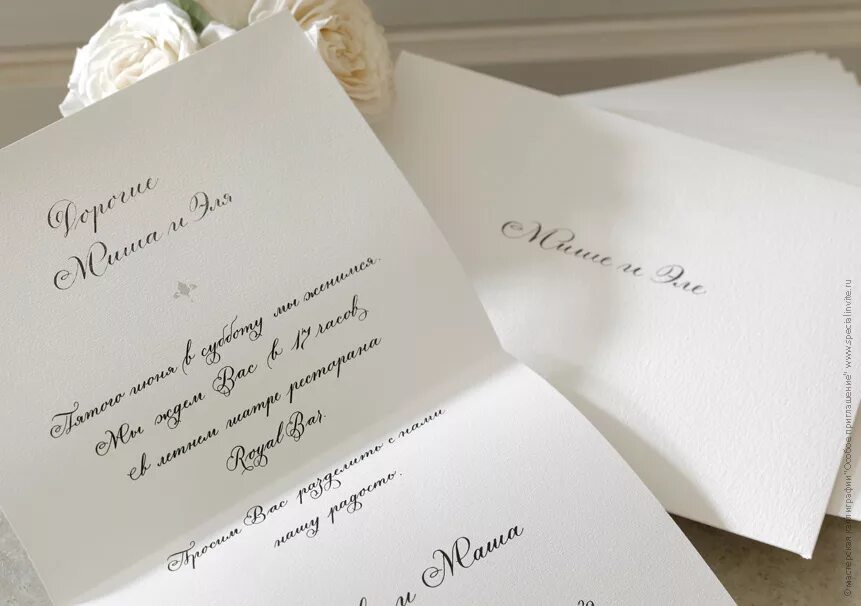 Дорогие
Миша и Эля
Пятого июня в субботу мы женимся.
Мы ждем Вас в 17 часов
в летнем театре ресторана
Royal Bar.
Просим Вас разделить с нами
нашу радость.
и Маша
Мише и Эле
© мастерская каллиграфии "Особое приглашение" www.specialinvite.ru